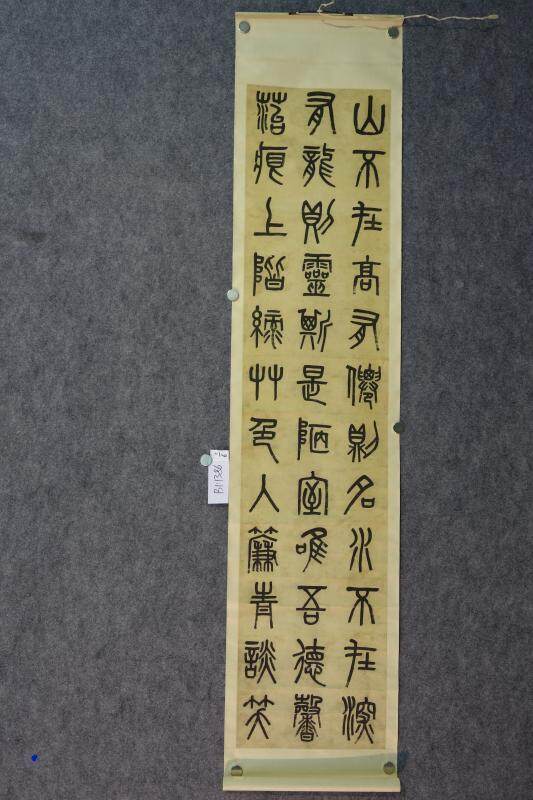 山不在高有僊則名水不在深
有龍則靈斯是陋室唯吾德馨
苔痕上階綠艸色入簾青談笑
B1-1386